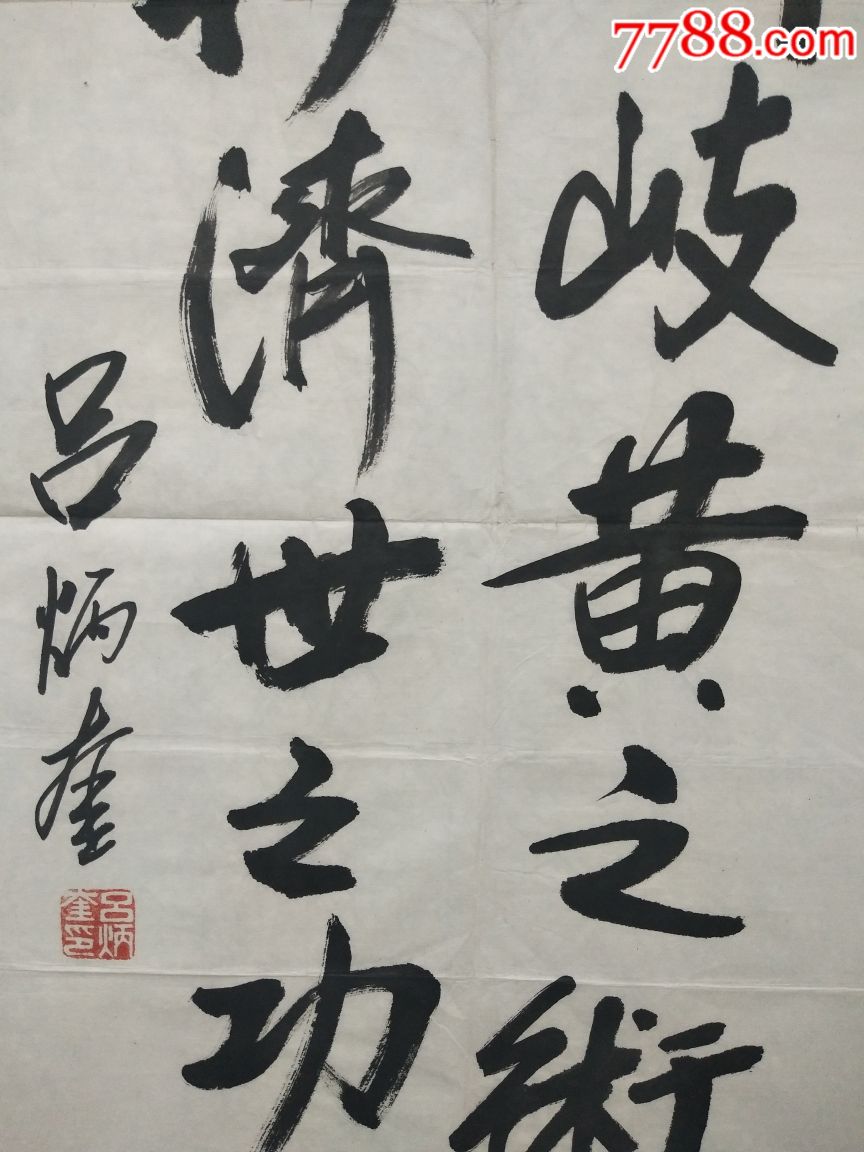 7788.com
岐黄之術
濟世之功
吕炳奎
吕炳奎印